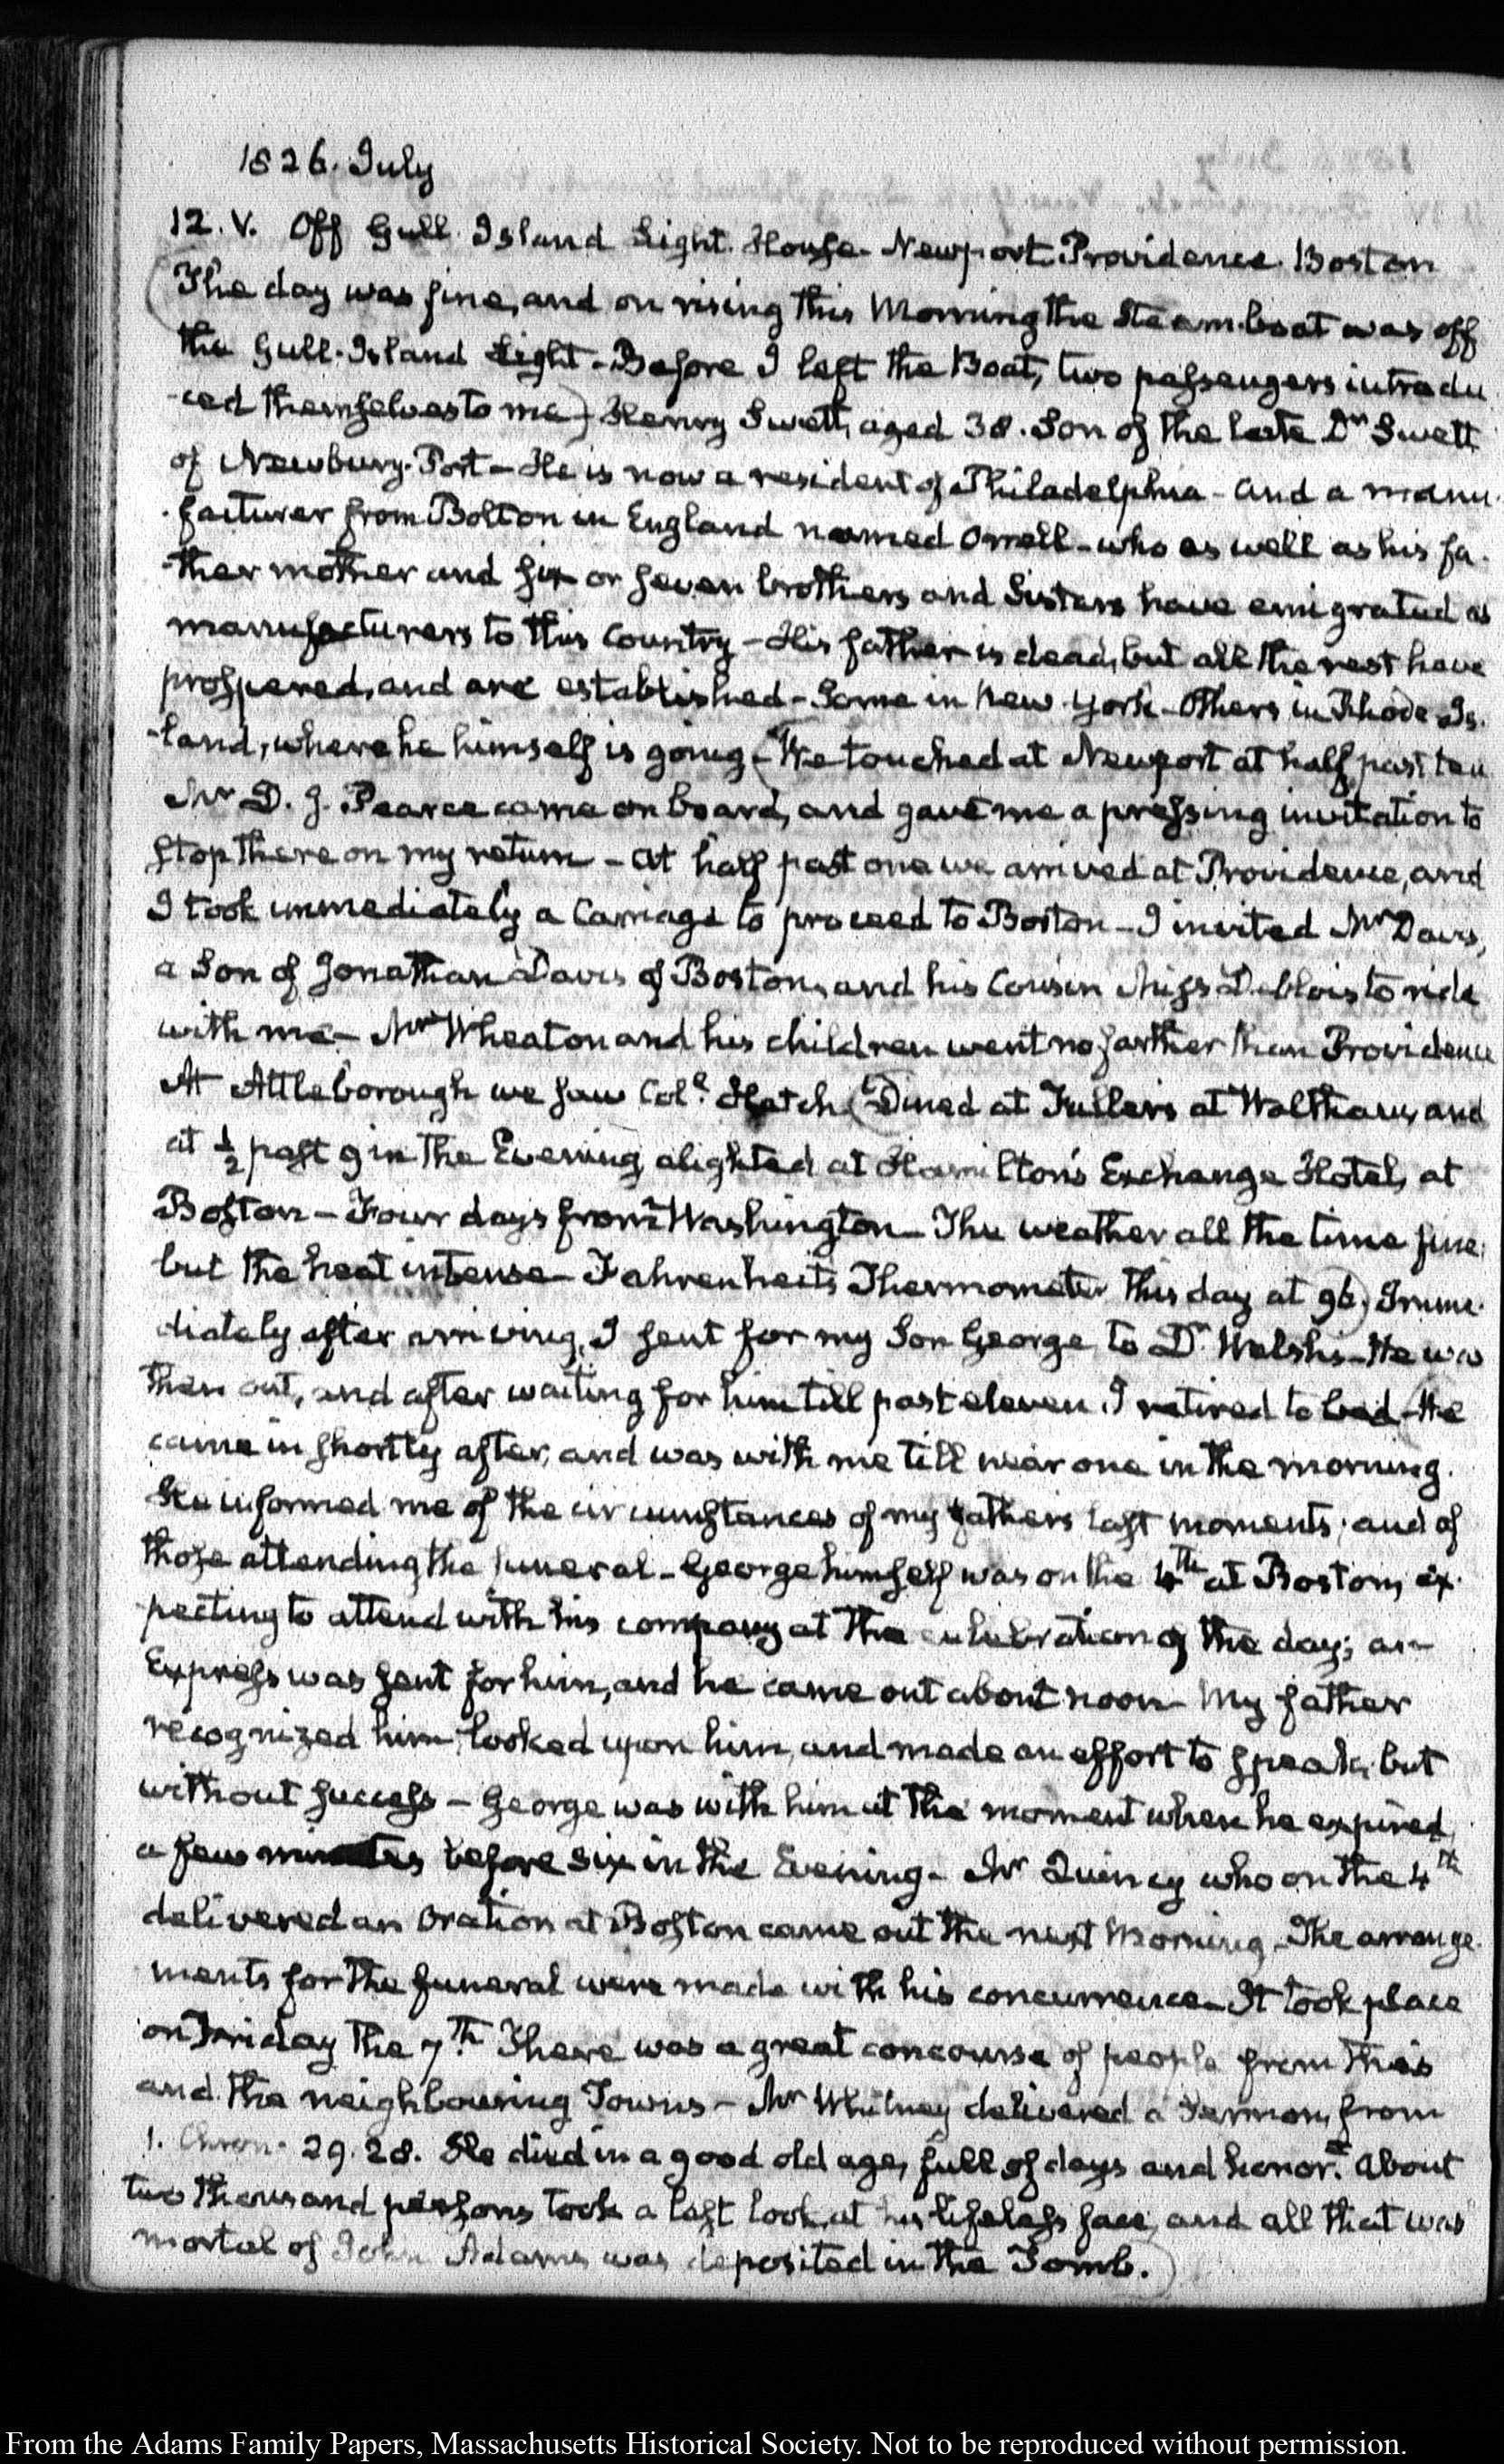 1826. July
12. V. Off Gull Island Light House. Newport. Providence. Boston
(The day was fine, and on rising this Morning the Steam-boat was off
the Gull-Island Light - Before I left the Boat, two passengers introdu
-ced themselves to me) Henry Swett, aged 38. Son of the late Dr Swett
of Newbury-Port - He is now a resident of Philadelphia - and a manu-
-facturer from Bolton in England named Orrell - who as well as his fa-
-ther mother and six or seven brothers and Sisters have emigrated as
manufacturers to this Country - His father is dead, but all the rest have
prospered, and are established - Some in New-York - Others in Rhode-Is-
-land, where he himself is going - (We touched at Newport at half past ten
Mr D. J. Pearce came on board, and gave me a pressing invitation to
stop there on my return - At half past one we arrived at Providence, and
I took immediately a Carriage to proceed to Boston - I invited Mr Davis,
a Son of Jonathan Davis of Boston, and his Cousin Miss Deblois to ride
with me - Mr Wheaton and his children went no farther than Providence
At Attleborough we saw Coll. Hatch (Dined at Fullers at Waltham, and
at ½ past 9 in the Evening alighted at Hamilton's Exchange Hotel, at
Boston - Four days from Washington - The weather all the time fine;
but the heat intense - Fahrenheits Thermometer this day at 96.) Imme-
diately after arriving, I sent for my Son George, to Dr Welsh's - He was
then out, and after waiting for him till past eleven, I retired to bed - (He
came in shortly after, and was with me till near one in the morning.
He informed me of the circumstances of my fathers last moments, and of
those attending the funeral - George himself was on the 4th at Boston, ex-
pecting to attend with his company at the celebration of the day; an
Express was sent for him, and he came out about noon - My father
recognized him, looked upon him, and made an effort to speak, but
without success - George was with him at the moment when he expired,
a few minutes before six in the Evening - Mr Quincy who on the 4th
delivered an Oration at Boston came out the next Morning - The arrange-
ments for the funeral were made with his concurrence - It took place
on Friday the 7th There was a great concourse of people from this
and the neighbouring Towns - Mr Whitney delivered a Sermon, from
1. Chron. 29. 28. He died in a good old age, full of days and honor." About
two thousand persons took a last look at his lifeless face, and all that was
mortal of John Adams was deposited in the Tomb.)
From the Adams Family Papers, Massachusetts Historical Society. Not to be reproduced without permission.